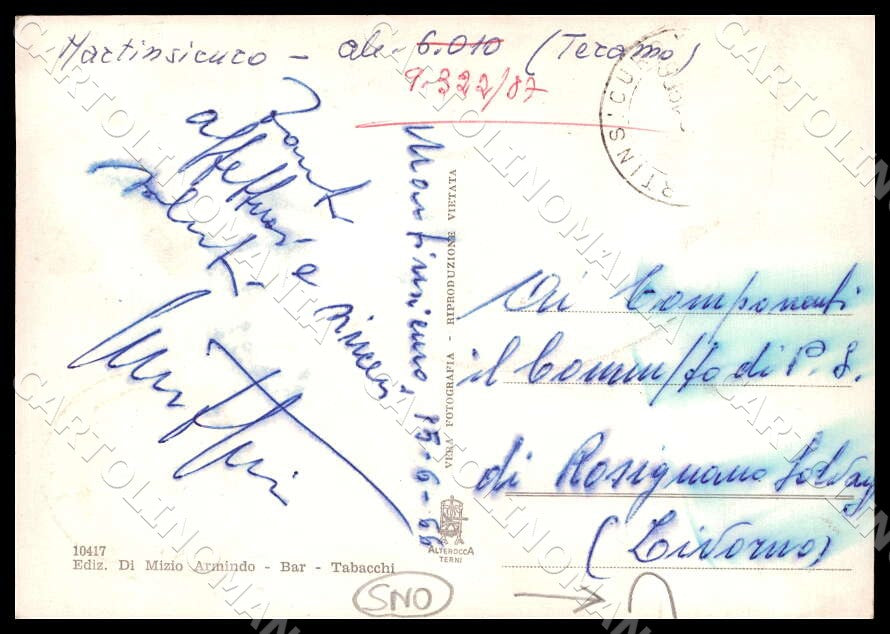 Martinsicuro - ab. 6.010 (Teramo)
9.322/87
RTINSICU
Tanti
affettuosi e sinceri
saluti.
Martinsicuro, 15-6-66
VERA FOTOGRAFIA - RIPRODUZIONE VIETATA
Ai Componenti
il Comm/to di P.S.
di Rosignano Solvay
(Livorno)
ALTEROCCA
TERNI
10417
Ediz. Di Mizio Armindo - Bar - Tabacchi
SNO
CARTOLINOMANIA